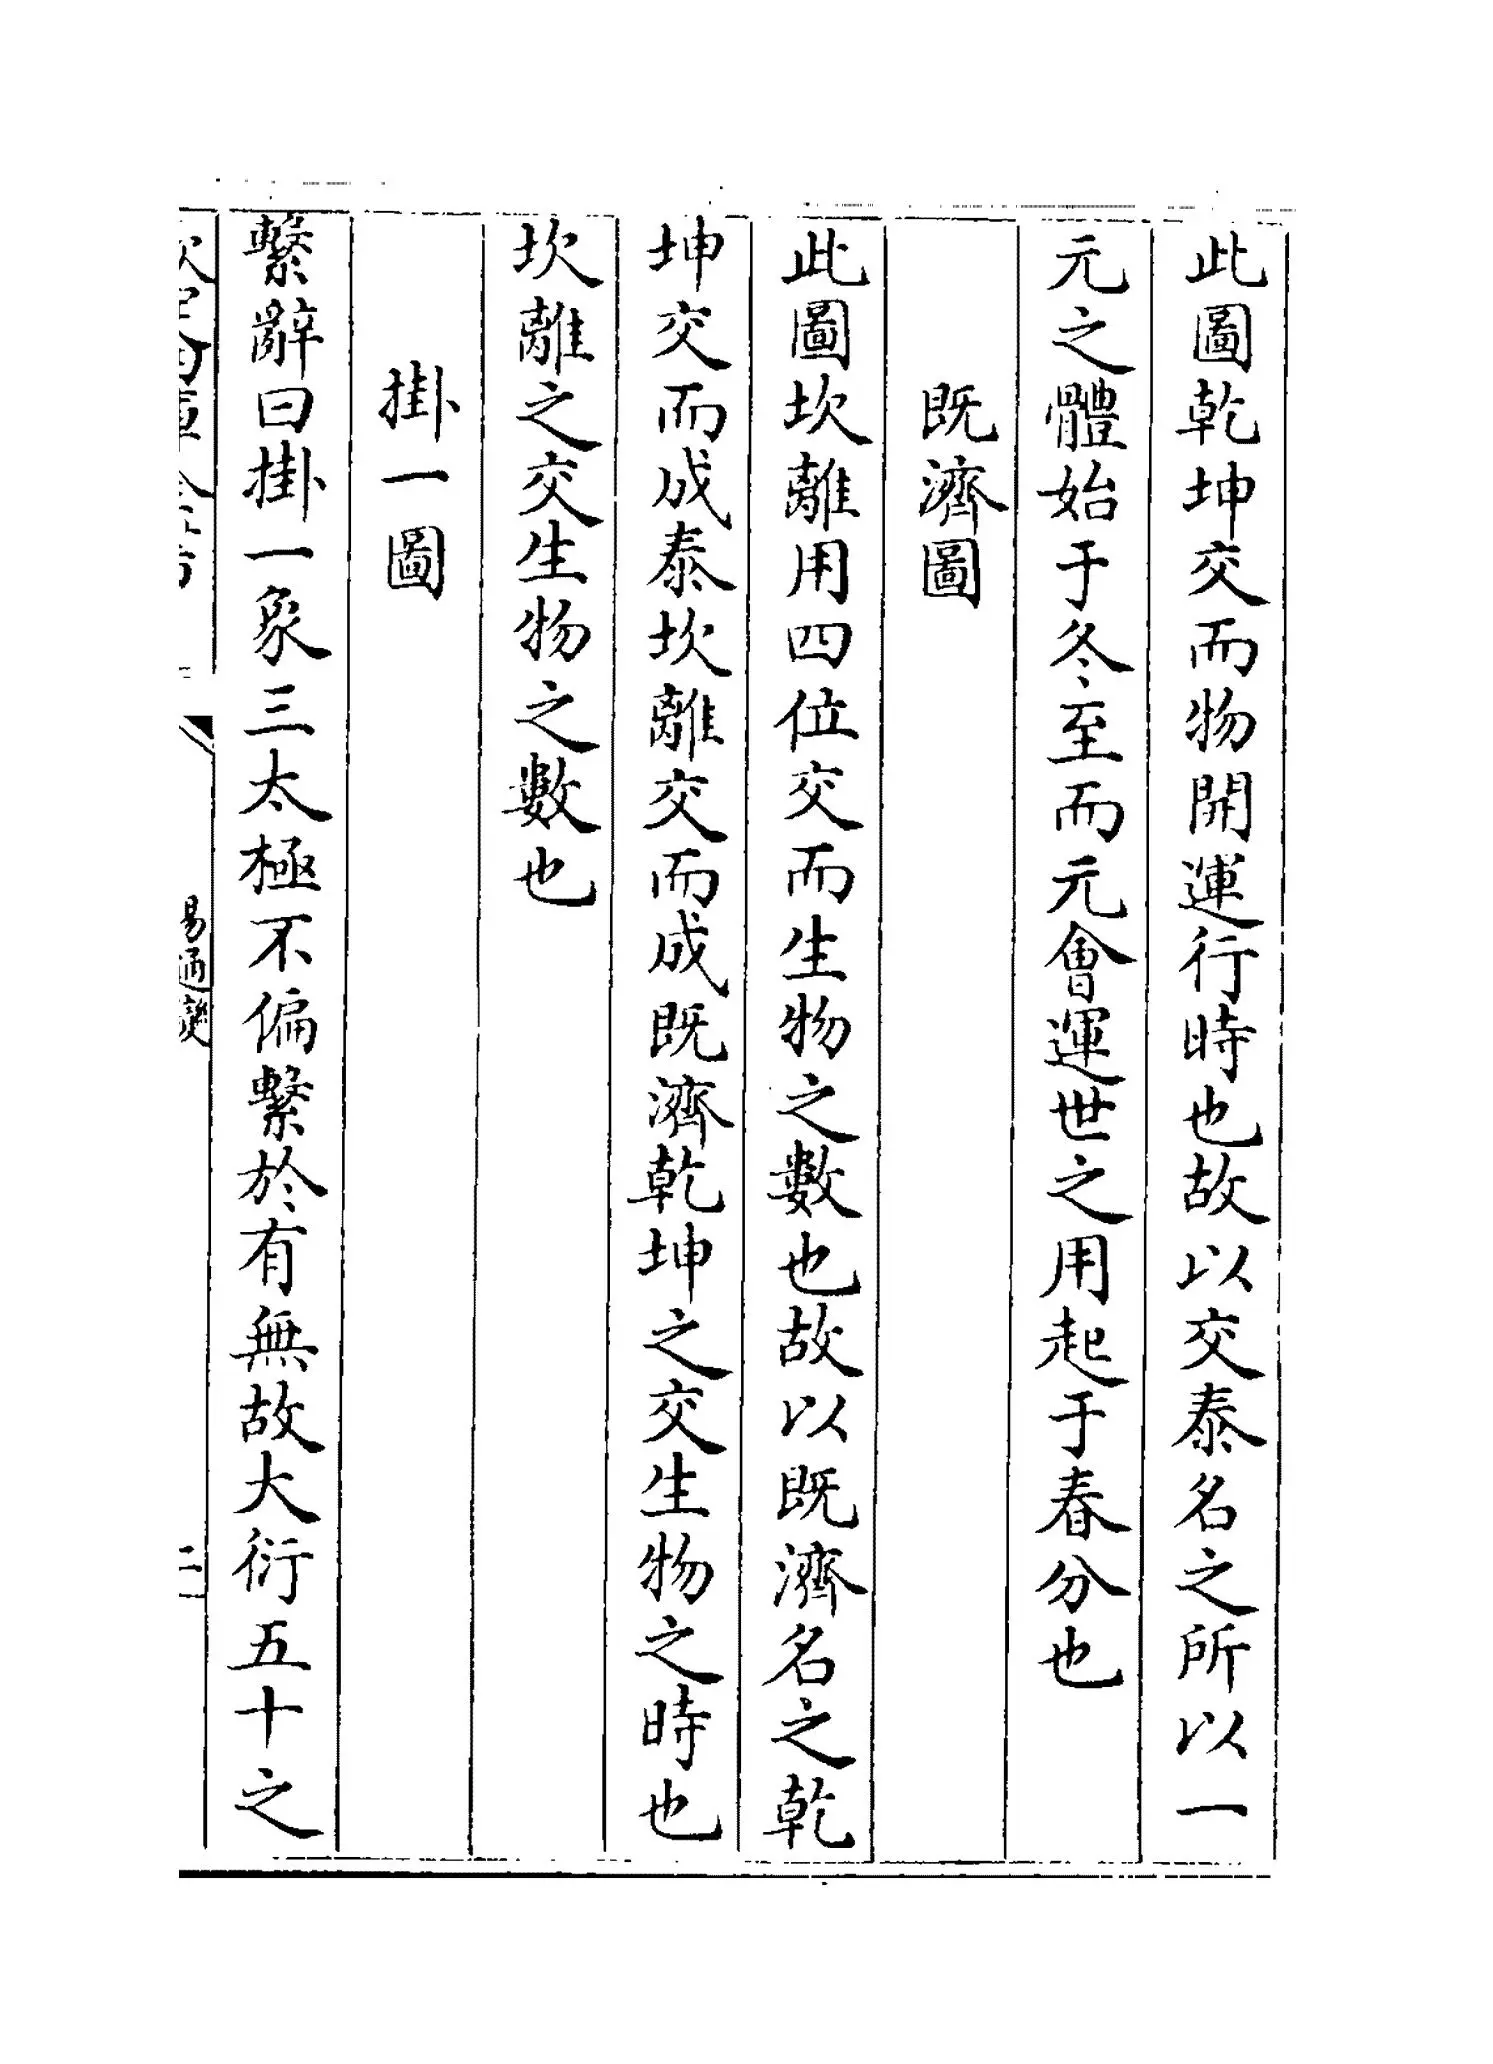 此圖乾坤交而物開運行時也故以交泰名之所以一
元之體始于冬至而元會運世之用起于春分也
既濟圖
此圖坎離用四位交而生物之數也故以既濟名之乾
坤交而成泰坎離交而成既濟乾坤之交生物之時也
坎離之交生物之數也
掛一圖
繫辭曰掛一象三太極不偏繫於有無故大衍五十之
易通變